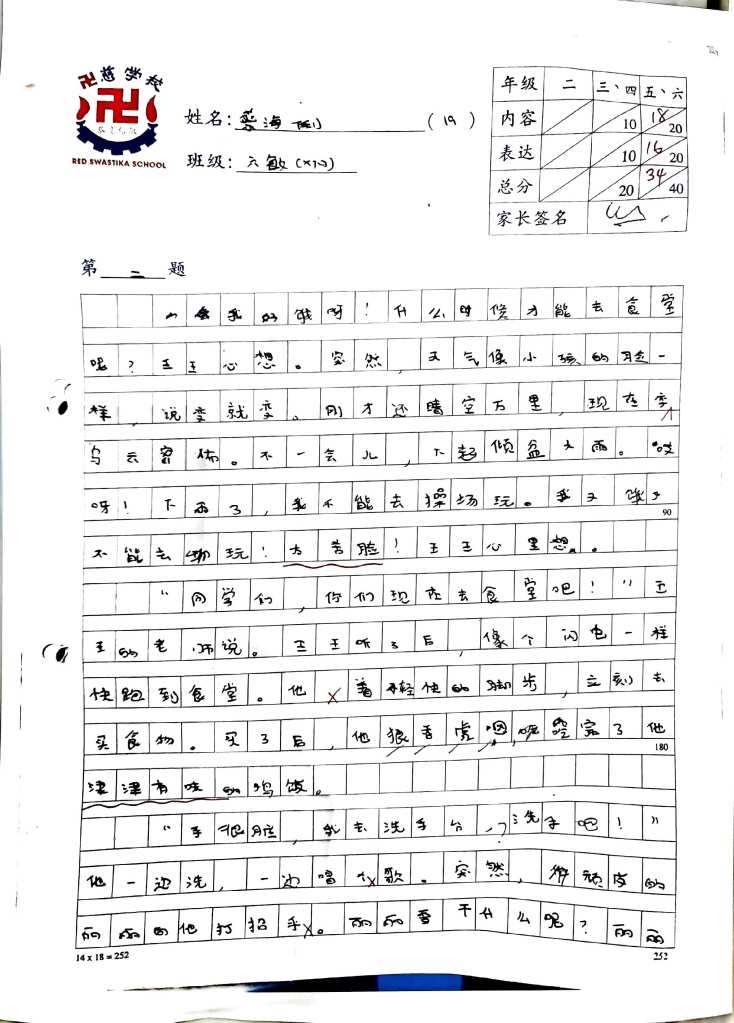 卍慈学校
RED SWASTIKA SCHOOL
姓名: 海 (19)
班级: 六敏
年级 二 三、四 五、六
内容 10 18 20
表达 10 16 20
总分 20 34 40
家长签名
第 二 题
我好饿呀！什么时候才能去食堂
呢？王王心想。突然，天气像小孩的脸一
样，说变就变。刚才还晴空万里，现在变
乌云密布。不一会儿，下起倾盆大雨。“哎
呀！下雨了，我不能去操场玩。我又
90
不能去玩！方苦脸！王王心里想。
“同学们，你们现在去食堂吧！”王
王的老师说。王王听了后，像个闪电一样
快跑到食堂。他着轻快的脚步，立刻去
买食物。买了后，他狼吞虎咽地完了他
180
津津有味的鸡饭。
“手很脏，我去洗手台，洗手吧！”
他一边洗，一边唱歌。突然，顽皮的
丽丽向他打招乎。丽丽要干什么呢？丽丽
14 x 18 = 252
252